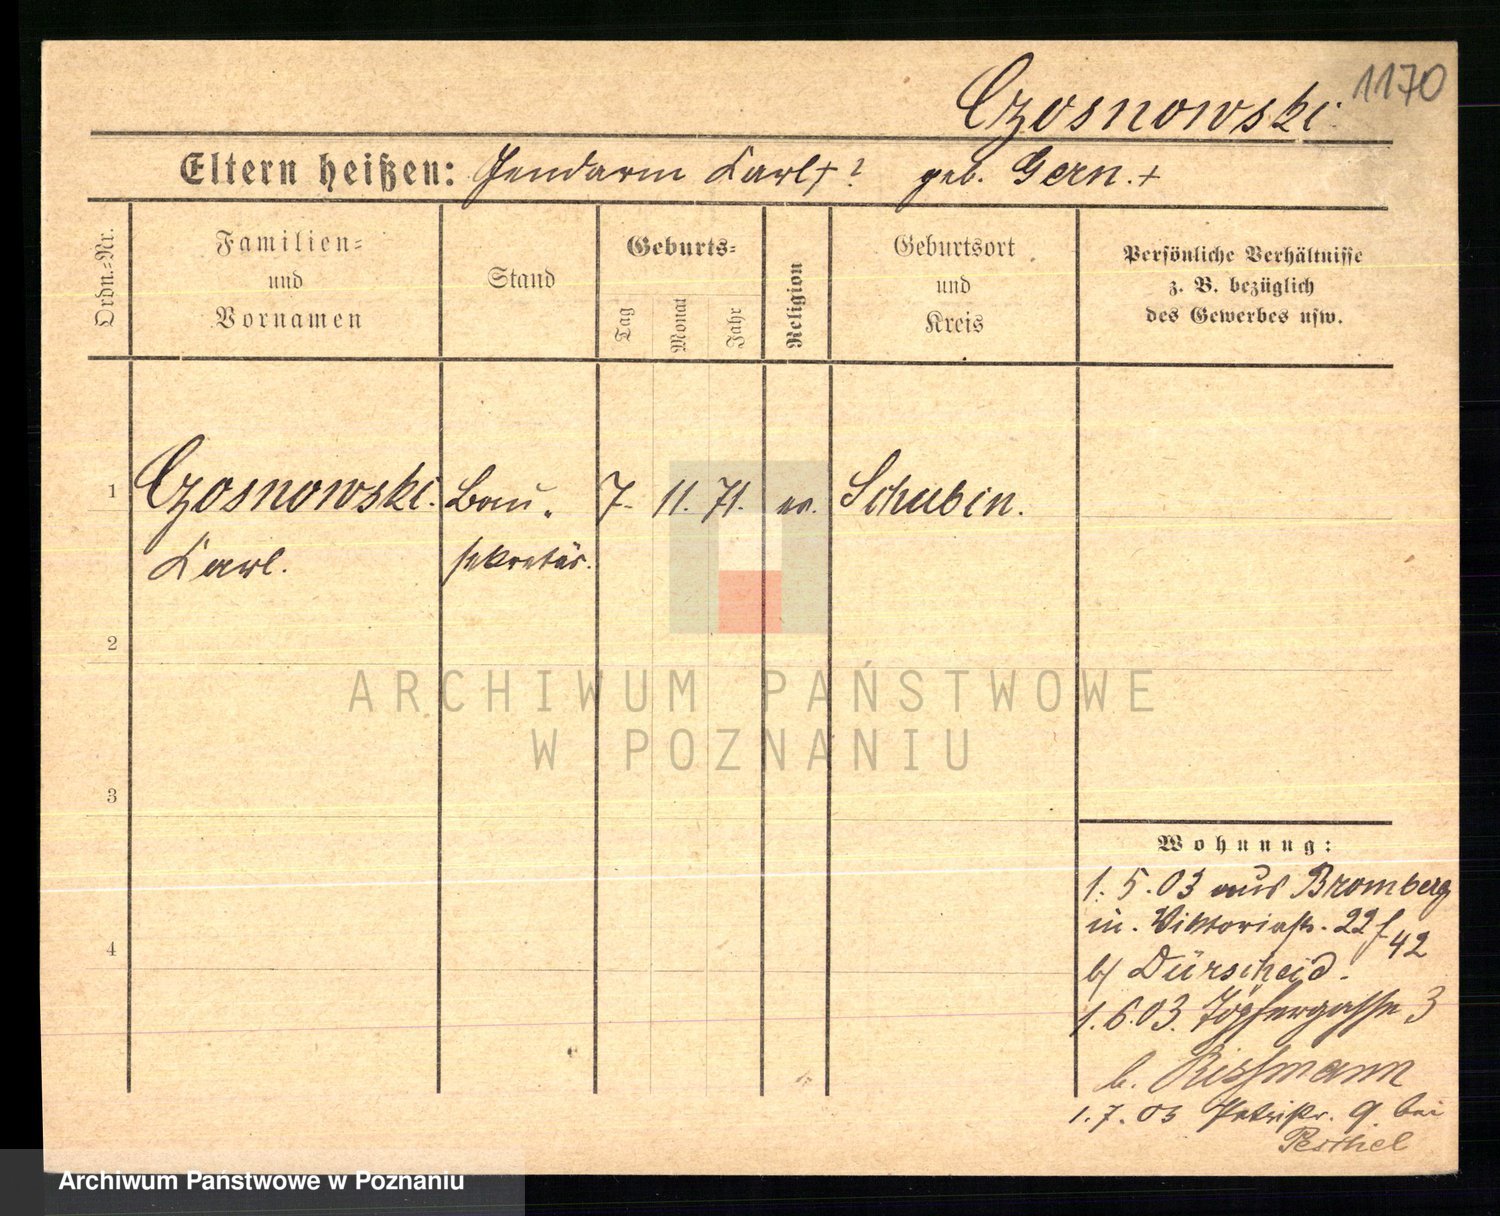 Czosnowski.
1170
Eltern heißen: Gendarm Karl +? geb. Gern. +
Ordn.-Nr.
Familien-
und
Vornamen
Stand
Geburts-
Tag
Monat
Jahr
Religion
Geburtsort
und
Kreis
Persönliche Verhältnisse
z. B. bezüglich
des Gewerbes usw.
1 Czosnowski. Bau- 7. 11. 71. ev. Schubin.
Karl. sekretär.
2
3
4
Wohnung:
1. 5. 03 aus Bromberg
in. Viktoriastr. 22
42
b/ Dürscheid.
1. 6. 03. Töpfergasse 3
b. Rissmann
1. 7. 03 Petristr. 9 bei
Peschel
ARCHIWUM PAŃSTWOWE
W POZNANIU
Archiwum Państwowe w Poznaniu